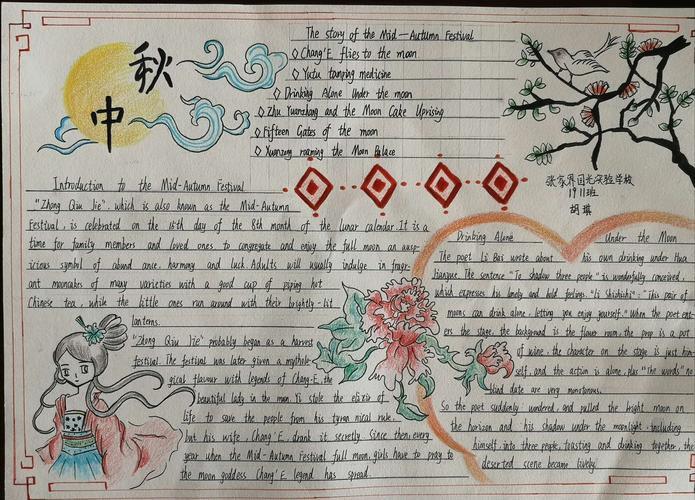 秋
中
The story of the Mid-Autumn Festival
◇ Chang'E flies to the moon
◇ Yutu tamping medicine
◇ Drinking Alone Under the moon
◇ Zhu Yuanzhang and the Moon Cake Uprising
◇ Fifteen Gates of the moon
◇ Xuanzong roaming the Moon Palace
张家界国光实验学校
1911班
胡琪
Introduction to the Mid-Autumn Festival
"Zhong Qiu Jie", which is also known as the Mid-Autumn
Festival, is celebrated on the 15th day of the 8th month of the lunar calendar. It is a
time for family members and loved ones to congregate and enjoy the full moon an ausp-
icious symbol of abund ance, harmony and luck. Adults will usually indulge in fragr-
ant mooncakes of many varieties with a good cup of piping hot
Chinese tea, while the little ones run around with their brightly-lit
lanterns.
"Zhong Qiu Jie" probably began as a harvest
festival. The festival was later given a mytholo-
gical flavour with legends of Chang-E, the
beautiful lady in the moon. Yi stole the elixir of
life to save the people from his tyran nical rule,
but his wife, Chang'E, drank it secretly. Since then, every
year when the Mid-Autumn Festival full moon, girls have to pray to
the moon goddess Chang'E legend has spread.
Drinking Alone Under the Moon
The poet Li Bai wrote about his own drinking under Hua
tianque. The sentence "To shadow three people" is wonderfully conceived,
which expresses his lonely and bold feelings. "Li Shizhishi": "This pair of
moons can drink alone, letting you enjoy yourself." When the poet ent-
ers the stage, the background is the flower room, the prop is a pot
of wine, the character on the stage is just him
self, and the action is alone, plus "the words" no
blind date are very monotonous.
So the poet suddenly wondered, and pulled the bright moon on
the horizon and his shadow under the moonlight, including
himself, into three people, toasting and drinking together, the
deserted scene became lively.